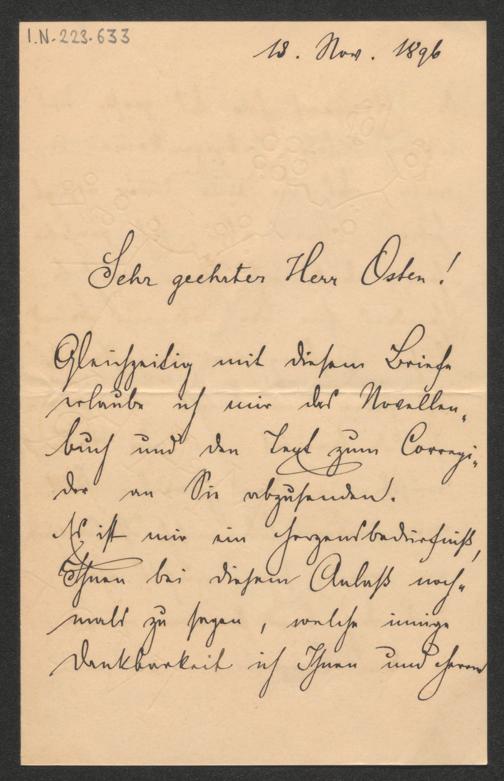 I.N.-223.633
18. Nov. 1896
Sehr geehrter Herr Osten!
Gleichzeitig mit diesem Briefe
erlaube ich mir das Novellen-
buch und den Text zum Corregi-
dor an Sie abzusenden.
Es ist mir ein Herzensbedürfniß,
Ihnen bei diesem Anlaß noch-
mals zu sagen, welche innige
Dankbarkeit ich Ihnen und Herrn